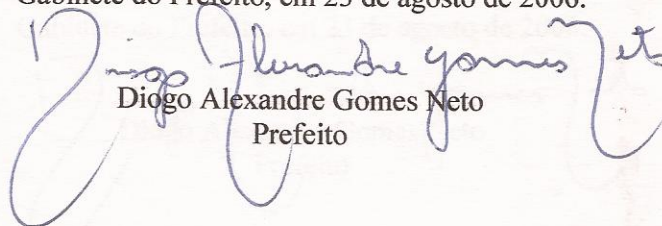 Gabinete do Prefeito, em 23 de agosto de 2006.
Diogo Alexandre Gomes Neto
Diogo Alexandre Gomes Neto
Prefeito